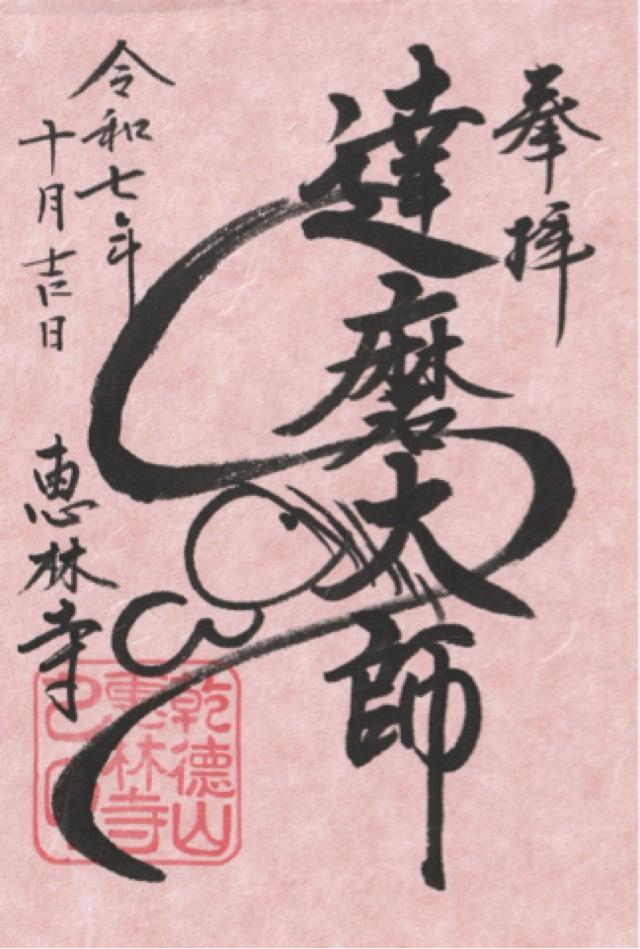 奉拝
達磨大師
令和七年
十月吉日
恵林寺
乾徳山
恵林寺